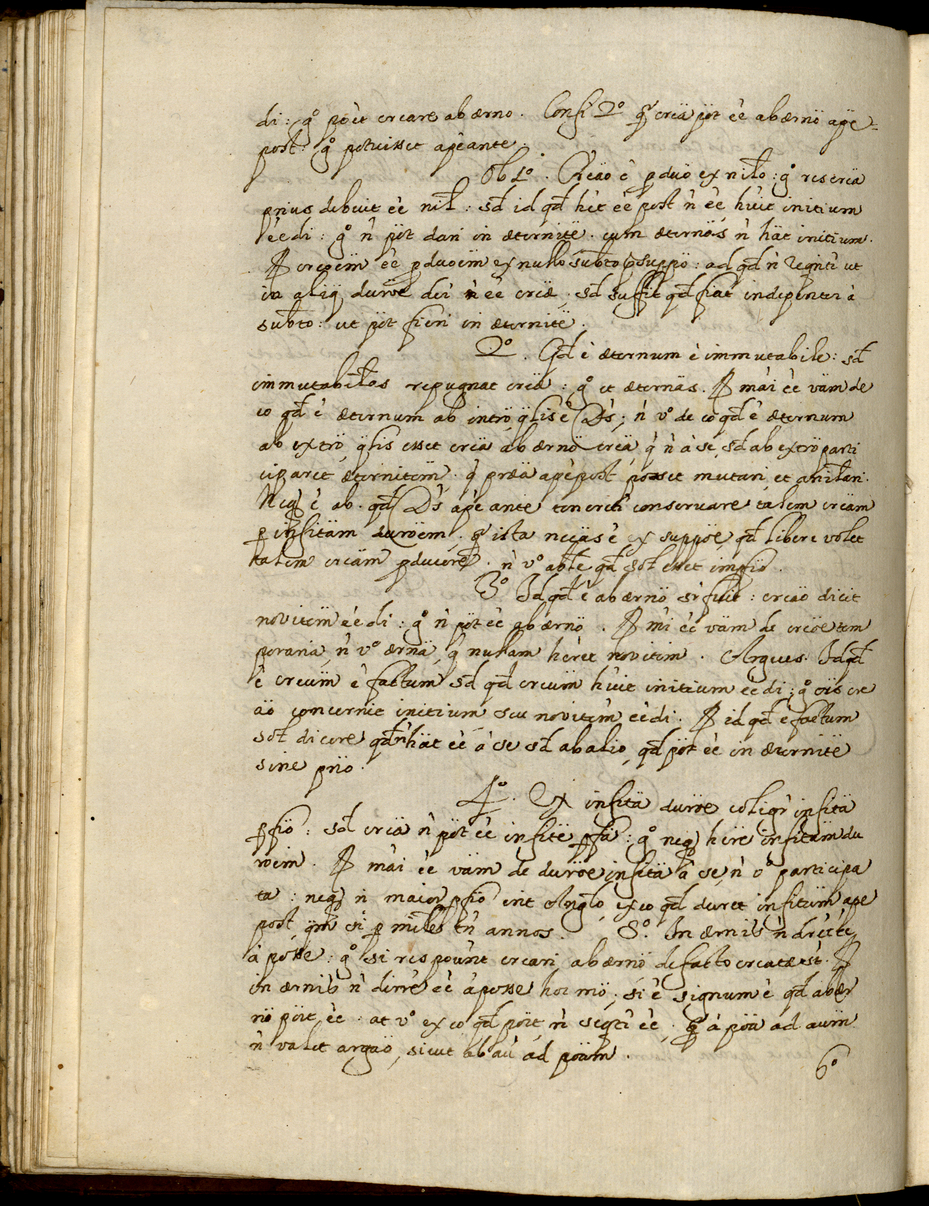 di: gͦ pöit creare ab ærno. Conf.r 2ͦ qͥ creä pöt eē ab ærnö apë-
post: gͦ potuisset apëante.
Ob 1ͦ. Creäo ē pduö ex nihlo: gͦ res creä
prius debuit eē nihl: sd id qd hët eē post n̄ eē hüit initium
eēdi: gͦ n̄ pöt dari in æternitë. cum æternäs n̄ hät initium.
R creöem eē pduöem ex nullo subto psuppö: ad qd n̄ reqriti ut
in aliq duröe dëi n̄ eē creä. sd suffit qd fiat indepenter a
subto: ut pöt fieri in æternitë.
2ͦ. Qd ē æternum ē immutabile: sd
immutabilitas repugnat creä: gͦ et æternäs. R mäi eē väm de
eo qd ē æternum ab intrö qlis ē Ds; n̄ vͦ de eo qd ē æternum
ab extrö, qlis esset creä ab ærnö creä q n̄ à se, sd ab extrö parti
ciparet æternitëm. q præä apëpost posset mutari, et anihlari.
Neq ē ab. qd Ds apë ante teneret conservare talem creäm
p infitäm duröem. q ista necïäs ē ex suppöe, qd libere volet
talem creäm pducere. n̄ vͦ abte qd sol esset impfio.
3ͦ Id qd ē ab ærnö sr fuit: creäo dicit
novitëm eēdi: gͦ n̄ pöt eē ab ærnö. R mi eē väm de creöe tem
poranea, n̄ vͦ ærnä, q nullam heret novitëm. Argues. Id qd
ē creüm ē factum sd qd creüm hüit initium eēdi; gͦ oïs cre
äo concernit initium seu novitëm eēdi. R id qd ē factum
sol dicere qd n̄ hät eē à se sd ab alio, qd pöt eē in æternitë
sine prïo.
4ͦ. Ex infitä duröe coligr infitä
pfïo: sd creä n̄ pöt eē infitë pfä: gͦ neq herë infitäm du
röem. R mäi eē väm de duröe infitä à se, n̄ vͦ participa
ta: neq n̄ maior pfïo erit Anglo, ex eo qd duret infitüm apë
post, qm si p milles tn annos. 5ͦ. In ærnis n̄ drcte
à posse: gͦ si res poünt creari ab ærnö de facto creatæ st. R
in ærnis n̄ dirre eē à posse hoc mö; si ē signum ē qd ab ær
nö pöit eē. at vͦ ex eo qd pöit n̄ seqti eē. q à pöä ad aüm
n̄ valet argäo, sicut ab aü ad pöam.
6ͦ